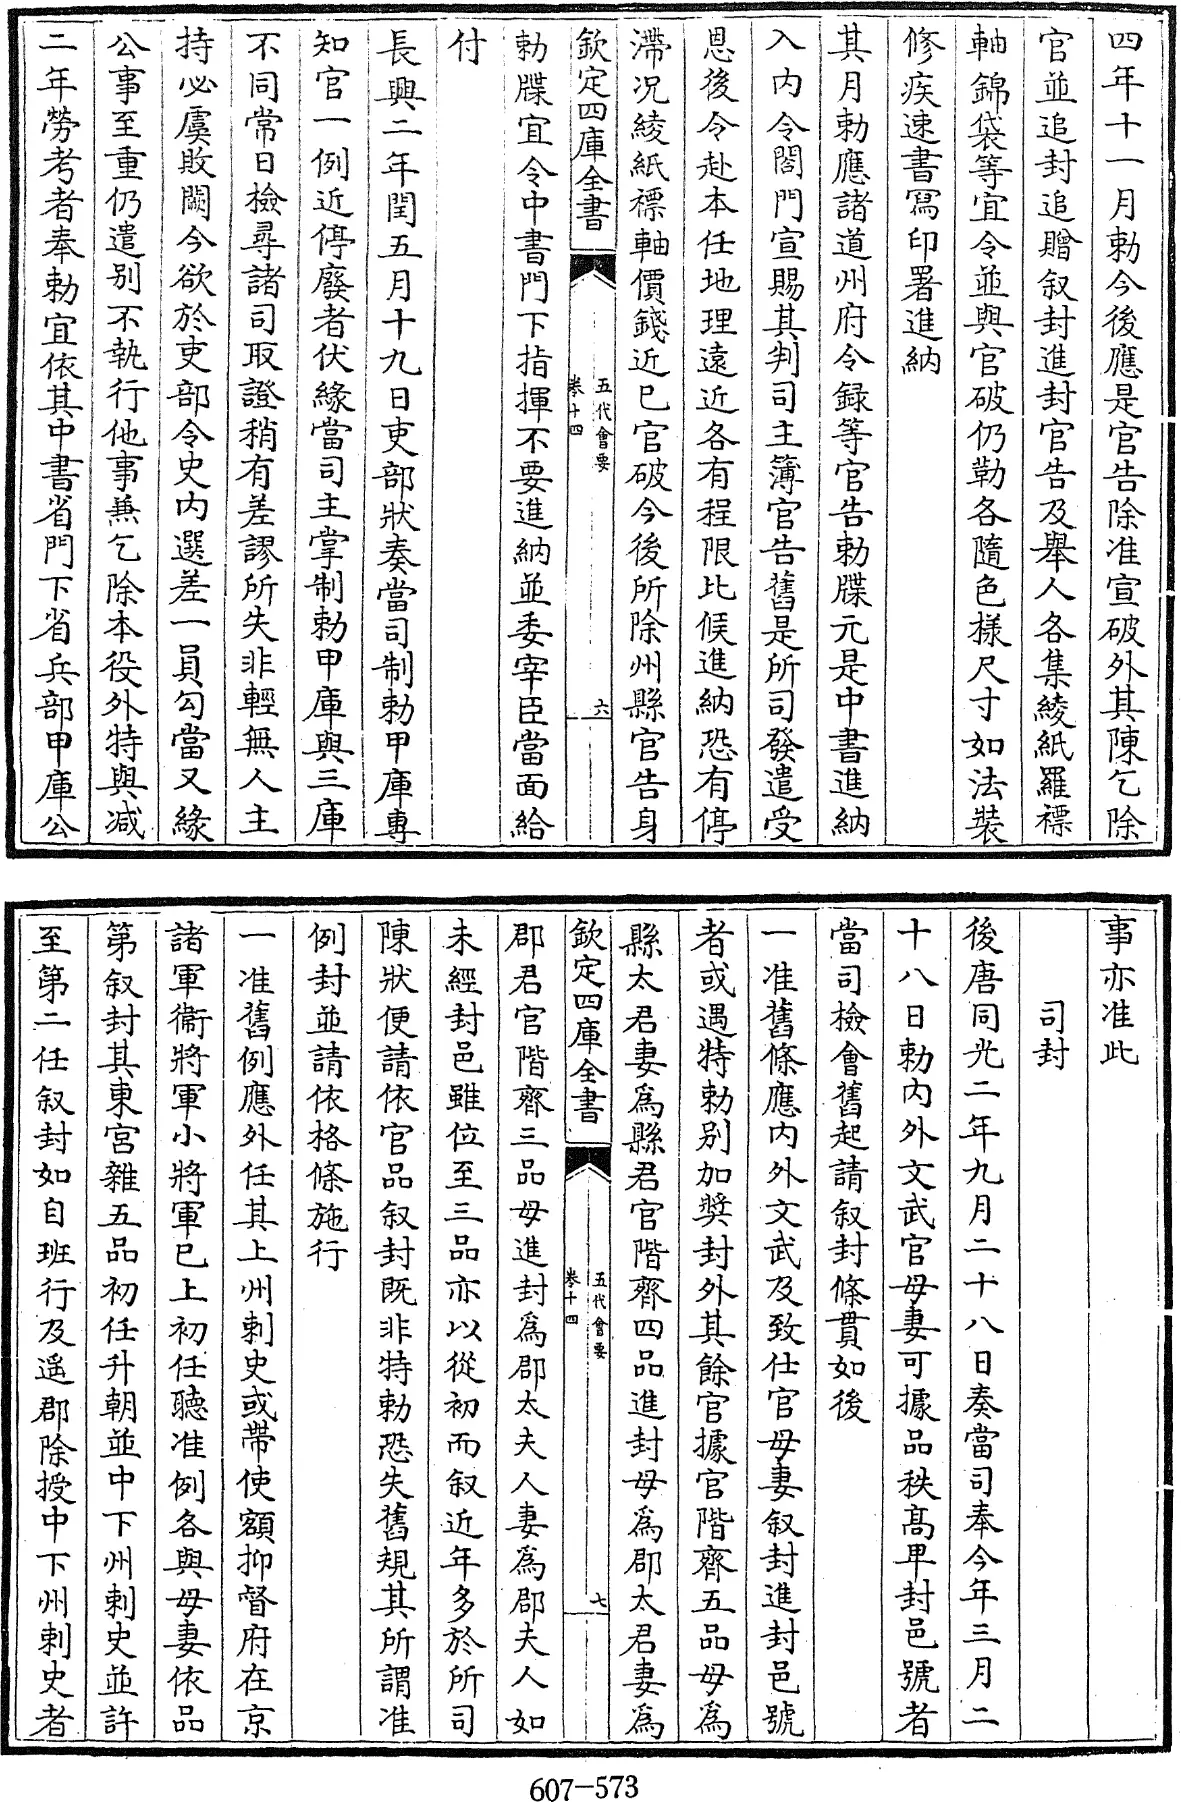 四年十一月勅今後應是官告除准宣破外其陳乞除
官並追封追贈叙封進封官告及舉人各集綾紙羅褾
軸錦袋等宜令並與官破仍勒各隨色様尺寸如法装
修疾速書寫印署進納
其月勅應諸道州府令録等官告勅牒元是中書進納
入内令閤門宣賜其判司主簿官告舊是所司發遣受
恩後令赴本任地理遠近各有程限比候進納恐有停
滯况綾紙褾軸價錢近已官破今後所除州縣官告身
欽定四庫全書
五代會要
卷十四
六
勅牒宜令中書門下指揮不要進納並委宰臣當面給
付
長興二年閏五月十九日吏部狀奏當司制勅甲庫專
知官一例近停廢者伏緣當司主掌制勅甲庫與三庫
不同常日檢尋諸司取證稍有差謬所失非輕無人主
持必虞敗闕今欲於吏部令史内選差一員勾當又緣
公事至重仍遣别不執行他事兼乞除本役外特與减
二年勞考者奉勅宜依其中書省門下省兵部甲庫公
事亦准此
司封
後唐同光二年九月二十八日奏當司奉今年三月二
十八日勅内外文武官母妻可據品秩髙卑封邑號者
當司檢會舊起請叙封條貫如後
一准舊條應内外文武及致仕官母妻叙封進封邑號
者或遇特勅别加奬封外其餘官據官階齊五品母為
縣太君妻為縣君官階齊四品進封母為郡太君妻為
欽定四庫全書
五代會要
卷十四
七
郡君官階齊三品母進封為郡太夫人妻為郡夫人如
未經封邑雖位至三品亦以從初而叙近年多於所司
陳狀便請依官品叙封既非特勅恐失舊規其所謂准
例封並請依格條施行
一准舊例應外任其上州刺史或帶使額抑督府在京
諸軍衛將軍小將軍已上初任聽准例各與母妻依品
第叙封其東宫雜五品初任升朝並中下州刺史並許
至第二任叙封如自班行及遥郡除授中下州刺史者
607-573